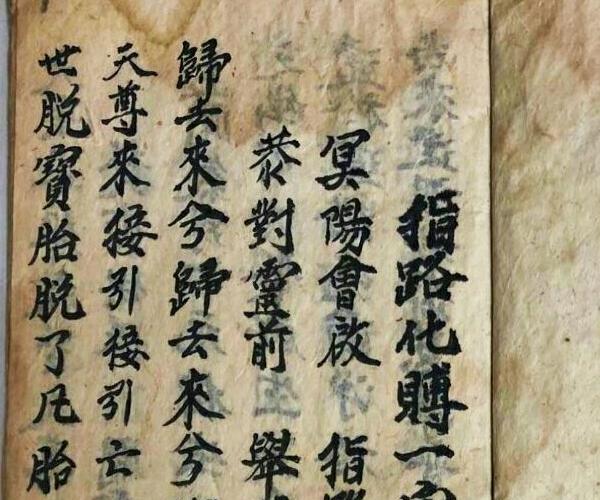 指路化賻一
冥陽會啟 指
恭對靈前 舉
歸去來兮歸去來兮
天尊來接引接引亡
世脱寶胎脱了凡胎